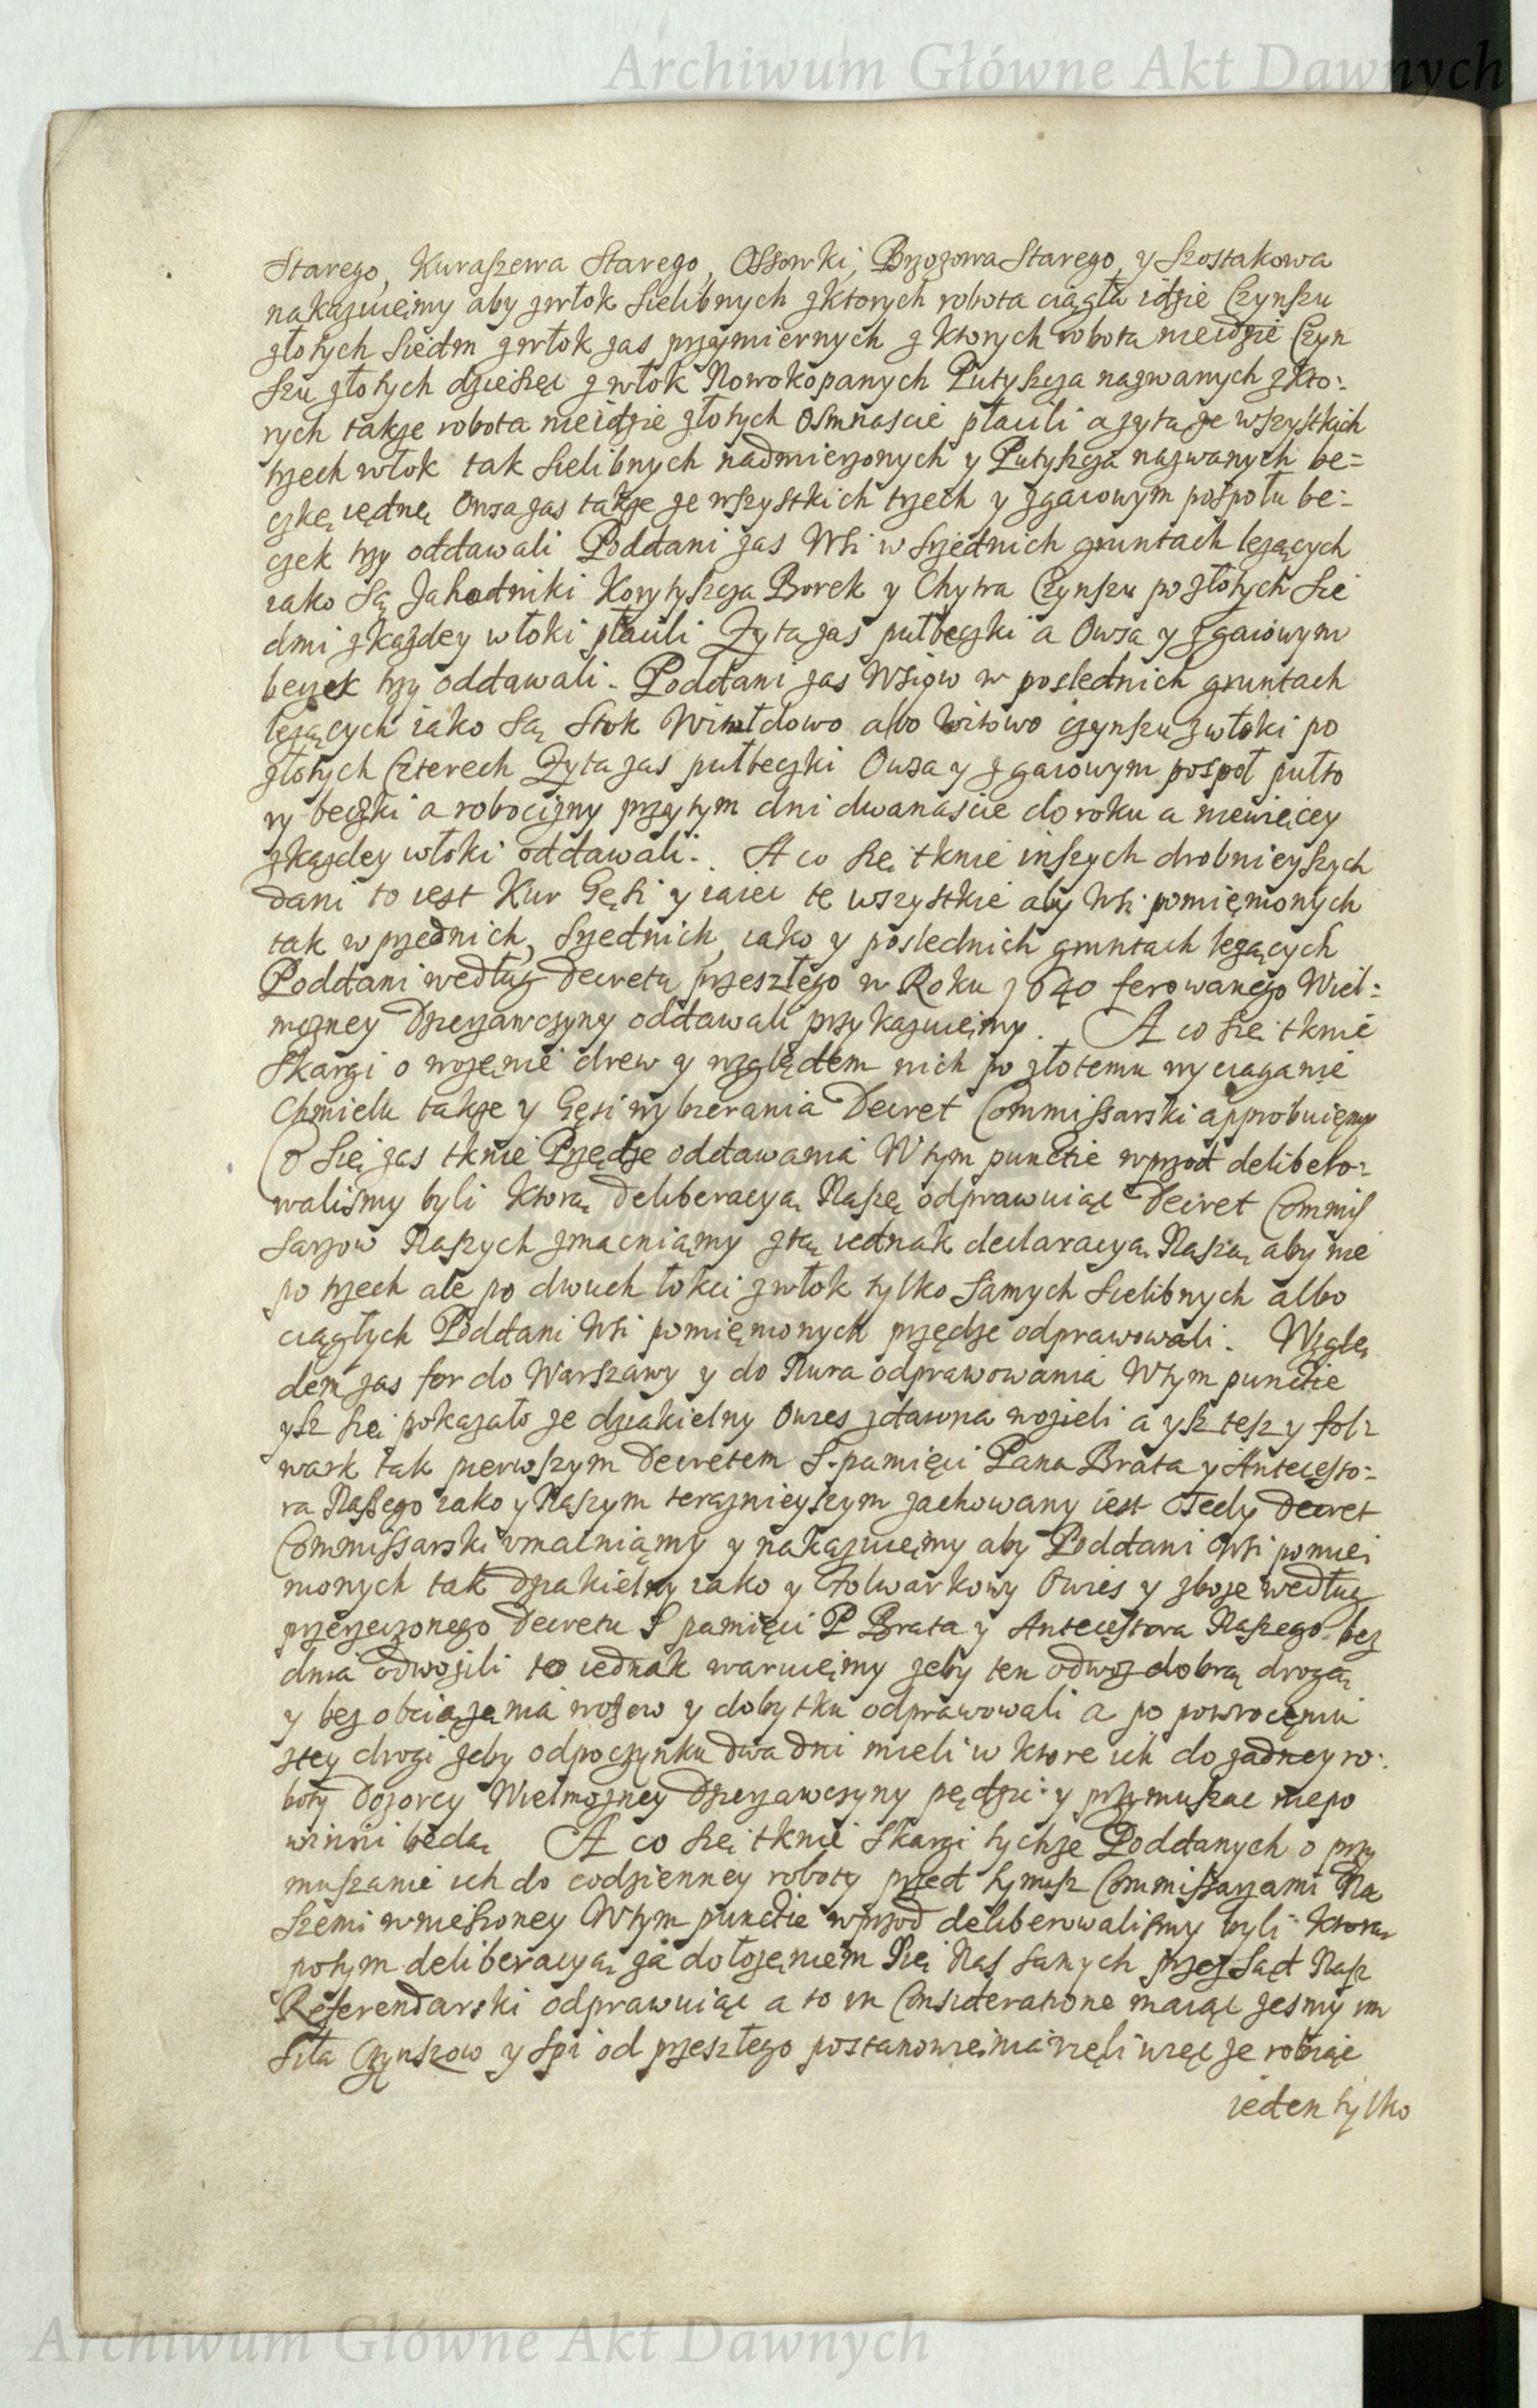 Archiwum Główne Akt Dawnych
Starego, Kuraszewa Starego, Ossowki, Brzozowa Starego, y Szostakowa
nakazuięmy aby zwłok Sielibnych zktorych robota ciągła idzie Czynszu
złotych Siedm zwłok zas przymiernych z ktorych robota nieidzie Czyn
szu złotych dziesięc z włok Nowokopanych Putyszcza nazwanych zkto:
rych takze robota nieidzie złotych Osmnascie płacili a zyta ze wszystkich
trzech włok tak Sielibnych nadmierzonych y Putyszcza nazwanych be=
czkę iędnę Owsa zas takze ze wszystkich trzech y zgaiowym pospołu be:
czek trzy oddawali Poddani zas Wsi w Srzednich gruntach lezących
iako Są Jahodniki Korytyszcza Borek y Chytra Czynszu po złotych Sie
dmi zkazdey włoki płacili Zyta zas pułbeczki a Owsa y zgaiowym
beczek trzy oddawali. Poddani zas Wsiow w poslednich gruntach
lezących iako Są Stok Witułdowo abo Witowo czynszu zwłoki po
złotych Czterech Zyta zas pułbeczki Owsa y zgaiowym pospoł pułto
ry beczki a robocizny przytym dni dwanascie do roku a niewięcey
zkazdey włoki oddawali. A co się tknie inszych drobnieyszych
dani to iest Kur Gęsi y iaiec te wszystkie aby Wsi pomięnionych
tak w przednich, Srzednich, iako y poslednich gruntach lezących
Poddani według Decretu przeszłego w Roku 1640 ferowanego Wiel:
mozney Dzierzawczyny oddawali przykazuięmy. A co się tknie
Skargi o wozęnie drew y względem nich po złotemu wyciąganie
Chmielu takze y Gęsi wybierania Decret Commissarski approbuięmy
Co się zas tknie Przędze oddawania W tym punctie wprzod delibero:
walismy byli Ktorą deliberacyą Naszę odprawuiąc Decret Commis
sarzow Naszych zmacniamy ztą iednak declaracyą Naszą aby nie
po trzech ale po dwuch łokci zwłok tylko Samych Sielibnych albo
ciągłych Poddani Wsi pomięnionych przędze odprawowali. Wzglę
dem zas for do Warszawy y do Nura odprawowania W tym punctie
ysz się pokazało ze dziakielny Owies zdawna wozieli a ysz tesz y fol:
wark tak pierwszym Decretem S. pamięci Pana Brata y Antecesso:
ra Naszego iako y Naszym teraznieyszym zachowany iest Tedy Decret
Commissarski vmacniamy y nakazuięmy aby Poddani Wsi pomie
nionych tak Dziakielny iako y Folwarkowy Owies y zboze według
przerzeczonego Decretu S pamięci P Brata y Antecessora Naszego bez
dnia odwozili to iednak waruięmy zeby ten odwoz dobrą drogą
y bez obciązęnia wozow y dobytku odprawowali a po powrocęniu
ztey drogi zeby odpoczynku dwa dni mieli w ktore ich do zadney ro:
boty Dozorcy Wielmozney Dzierzawczyny pędzic y przymuszac niepo
winni będą A co się tknie skargi tychze Poddanych o przy
muszanie ich do codzienney roboty przed tymisz Commissarzami Na
szemi wniesioney W tym punctie wprzod deliberowalismy byli Ktorą
potym deliberacyą za dołozęniem Się Nas Samych przez Sąd Nasz
Referendarski odprawuiąc a to in Consideratione maiąc zesmy im
siła Czynszow y Spi od przeszłego postanowięnia zięli więc ze robiąc
ieden tylko
Archiwum Główne Akt Dawnych